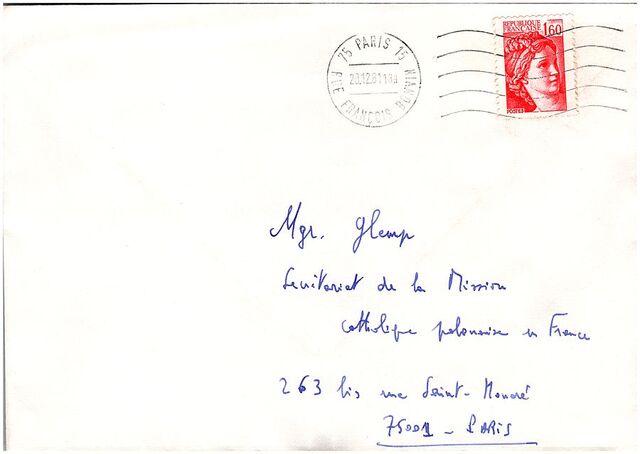 75 PARIS 15
RUE FRANÇOIS BONVIN
20.12.81 18H
REPUBLIQUE
FRANÇAISE
1,60
POSTES
Mgr. Glemp
Secrétariat de la Mission
catholique polonaise en France
263 bis rue Saint-Honoré
75001 - PARIS